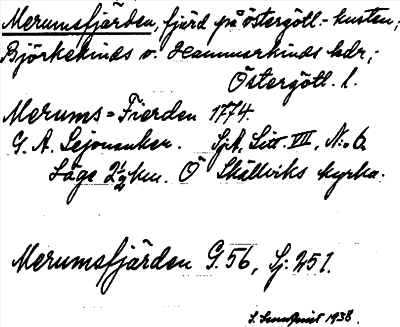 Merumsfjärden, fjärd på östergötl.-kusten;
Björkekinds o. Hammarkinds hdr;
Östergötl. l.
Merums=Fierden 1774.
G. A. Lejonanker. SjA, Litt. VII, No 6.
Läge 2½ km. Ö Skällviks kyrka.
Merumsfjärden G. 56, Sj: 251.
S. Sundquist 1938.